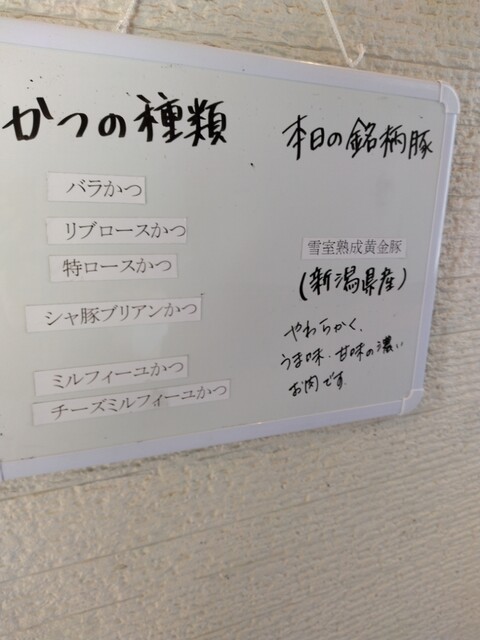 かつの種類
バラかつ
リブロースかつ
特ロースかつ
シャ豚ブリアンかつ
ミルフィーユかつ
チーズミルフィーユかつ
本日の銘柄豚
雪室熟成黄金豚
(新潟県産)
やわらかく、
うま味・甘味の濃い
お肉です。